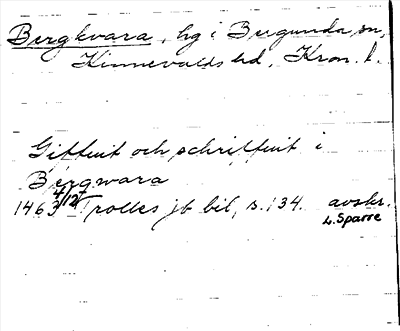 Bergkvara, hg i Bergunda sn,
Kinnevalds hd, Kron. l.
Giftuit och schriffuit i
Bergwara
1463 4/12 Trolles jb bil, s. 134. avskr.
L. Sparre